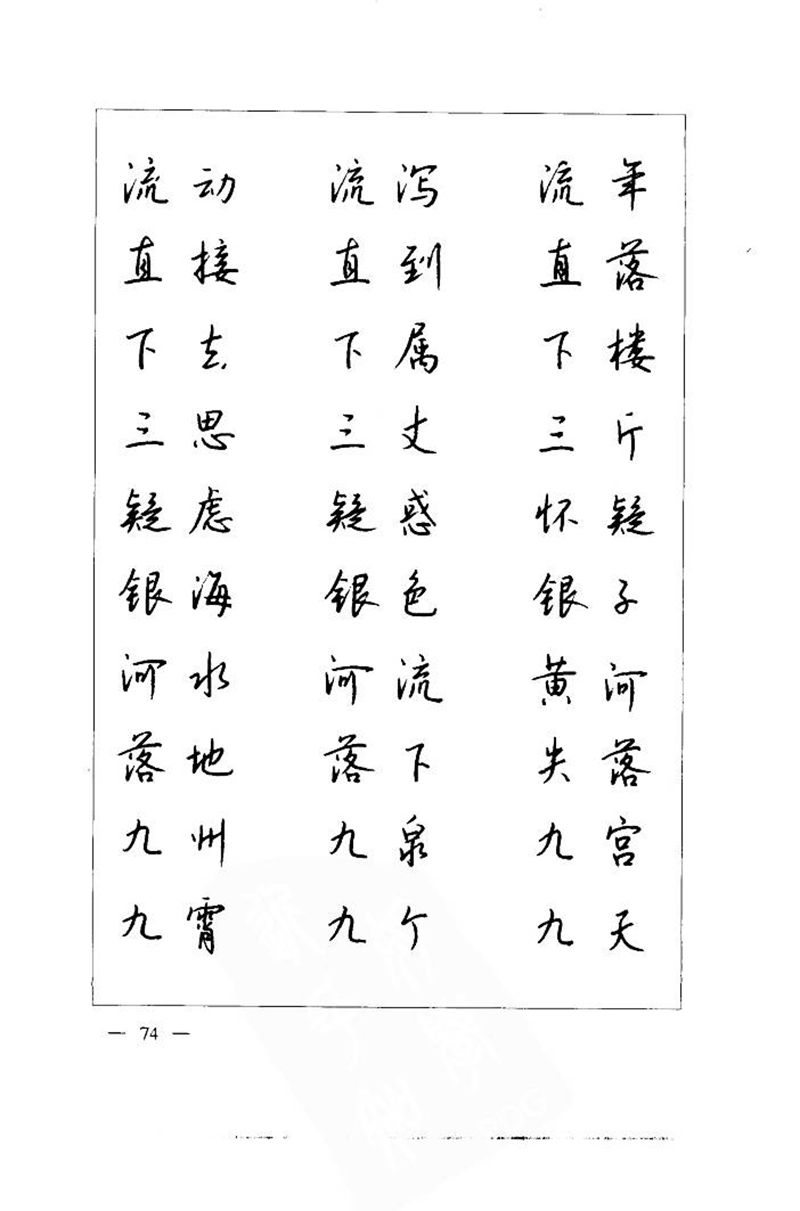 流动 流泻 流年
直接 直到 直落
下去 下属 下楼
三思 三丈 三斤
疑虑 疑惑 怀疑
银海 银色 银子
河水 河流 黄河
落地 落下 失落
九州 九泉 九宫
九霄 九个 九天
— 74 —